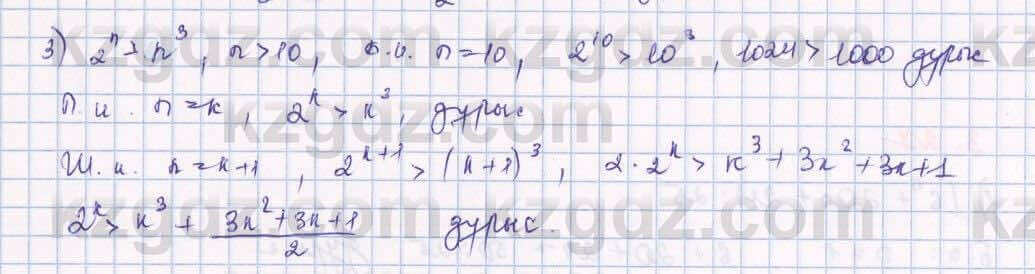 3) 2ⁿ > n³, n > 10, б.и. n = 10, 2¹⁰ > 10³, 1024 > 1000 дұрыс
П.и. n = k, 2ᵏ > k³, дұрыс
Ш.и. n = k+1, 2ᵏ⁺¹ > (k+1)³, 2·2ᵏ > k³ + 3k² + 3k + 1
2ᵏ > k³ + (3k² + 3k + 1)/2 дұрыс.
kzgdz.com